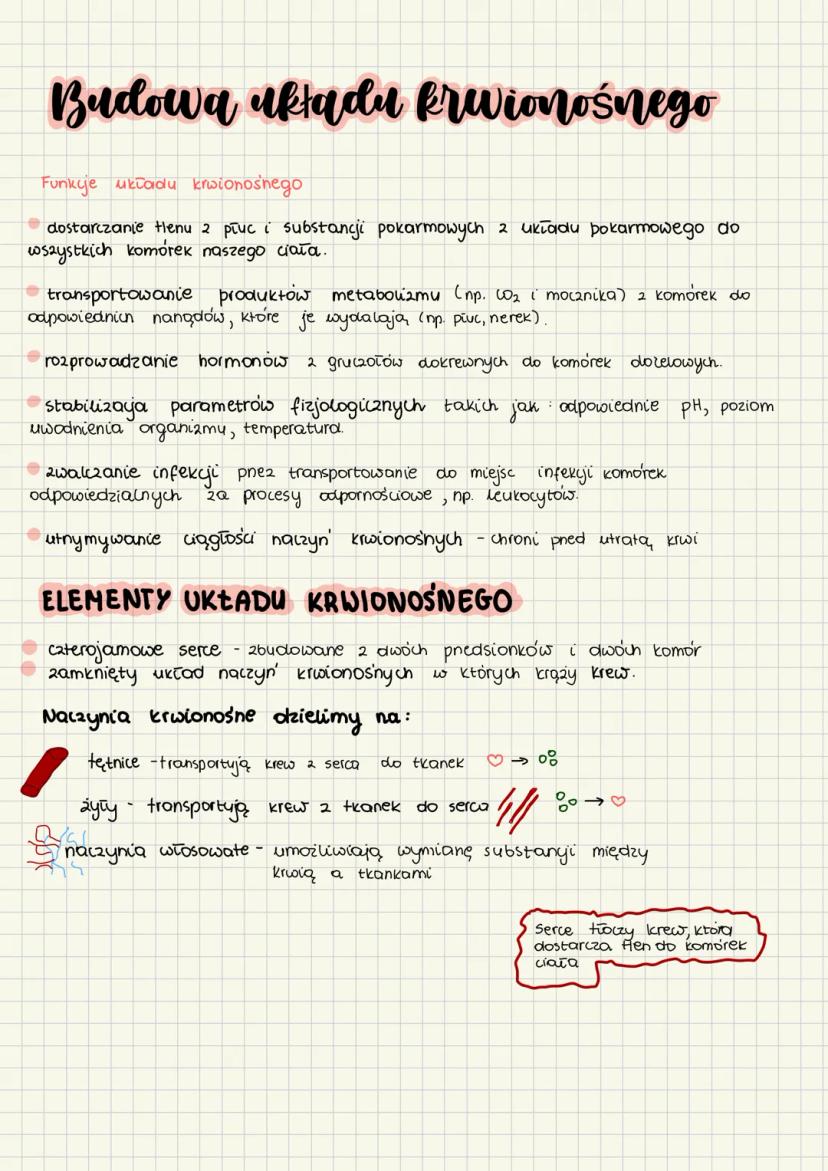 Budowa układu krwionośnego
Funkcje układu krwionośnego
dostarczanie tlenu z płuc i substancji pokarmowych z układu pokarmowego do
wszystkich komórek naszego ciała.
transportowanie produktów metabolizmu (np. CO2 i mocznika) z komórek do
odpowiednich narządów, które je wydalają (np. płuc, nerek).
rozprowadzanie hormonów z gruczołów dokrewnych do komórek docelowych.
stabilizacja parametrów fizjologicznych takich jak : odpowiednie pH, poziom
uwodnienia organizmu, temperatura.
zwalczanie infekcji przez transportowanie do miejsc infekcji komórek
odpowiedzialnych za procesy odpornościowe, np. leukocytów.
utrzymywanie ciągłości naczyń krwionośnych - chroni przed utratą krwi
ELEMENTY UKŁADU KRWIONOŚNEGO
czterojamowe serce - zbudowane z dwóch przedsionków i dwóch komór
zamknięty układ naczyń krwionośnych w których krąży krew.
Naczynia krwionośne dzielimy na:
tętnice - transportują krew z serca do tkanek
żyły - transportują krew z tkanek do serca
naczynia włosowate - umożliwiają wymianę substancji między
krwią a tkankami
Serce tłoczy krew, która
dostarcza tlen do komórek
ciała